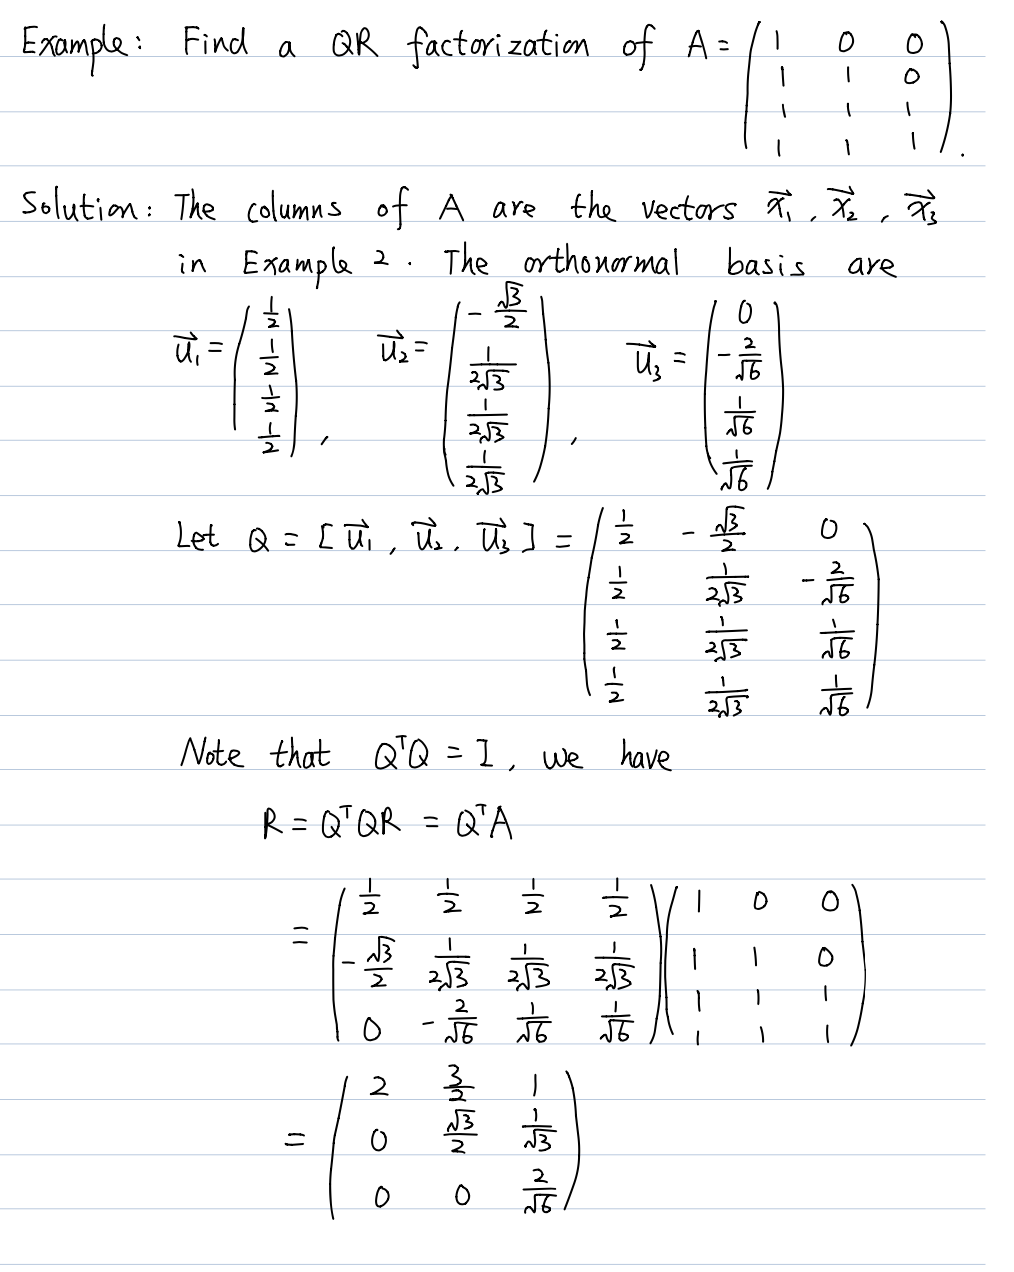 Example: Find a QR factorization of A = \begin{pmatrix} 1 & 0 & 0 \\ 1 & 1 & 0 \\ 1 & 1 & 1 \\ 1 & 1 & 1 \end{pmatrix}.
Solution: The columns of A are the vectors \vec{x}_1, \vec{x}_2, \vec{x}_3
in Example 2. The orthonormal basis are
\vec{u}_1 = \begin{pmatrix} \frac{1}{2} \\ \frac{1}{2} \\ \frac{1}{2} \\ \frac{1}{2} \end{pmatrix}, \vec{u}_2 = \begin{pmatrix} -\frac{\sqrt{3}}{2} \\ \frac{1}{2\sqrt{3}} \\ \frac{1}{2\sqrt{3}} \\ \frac{1}{2\sqrt{3}} \end{pmatrix}, \vec{u}_3 = \begin{pmatrix} 0 \\ -\frac{2}{\sqrt{6}} \\ \frac{1}{\sqrt{6}} \\ \frac{1}{\sqrt{6}} \end{pmatrix}
Let Q = [\vec{u}_1, \vec{u}_2, \vec{u}_3] = \begin{pmatrix} \frac{1}{2} & -\frac{\sqrt{3}}{2} & 0 \\ \frac{1}{2} & \frac{1}{2\sqrt{3}} & -\frac{2}{\sqrt{6}} \\ \frac{1}{2} & \frac{1}{2\sqrt{3}} & \frac{1}{\sqrt{6}} \\ \frac{1}{2} & \frac{1}{2\sqrt{3}} & \frac{1}{\sqrt{6}} \end{pmatrix}
Note that Q^T Q = I, we have
R = Q^T Q R = Q^T A
= \begin{pmatrix} \frac{1}{2} & \frac{1}{2} & \frac{1}{2} & \frac{1}{2} \\ -\frac{\sqrt{3}}{2} & \frac{1}{2\sqrt{3}} & \frac{1}{2\sqrt{3}} & \frac{1}{2\sqrt{3}} \\ 0 & -\frac{2}{\sqrt{6}} & \frac{1}{\sqrt{6}} & \frac{1}{\sqrt{6}} \end{pmatrix} \begin{pmatrix} 1 & 0 & 0 \\ 1 & 1 & 0 \\ 1 & 1 & 1 \\ 1 & 1 & 1 \end{pmatrix}
= \begin{pmatrix} 2 & \frac{3}{2} & 1 \\ 0 & \frac{\sqrt{3}}{2} & \frac{1}{\sqrt{3}} \\ 0 & 0 & \frac{2}{\sqrt{6}} \end{pmatrix}